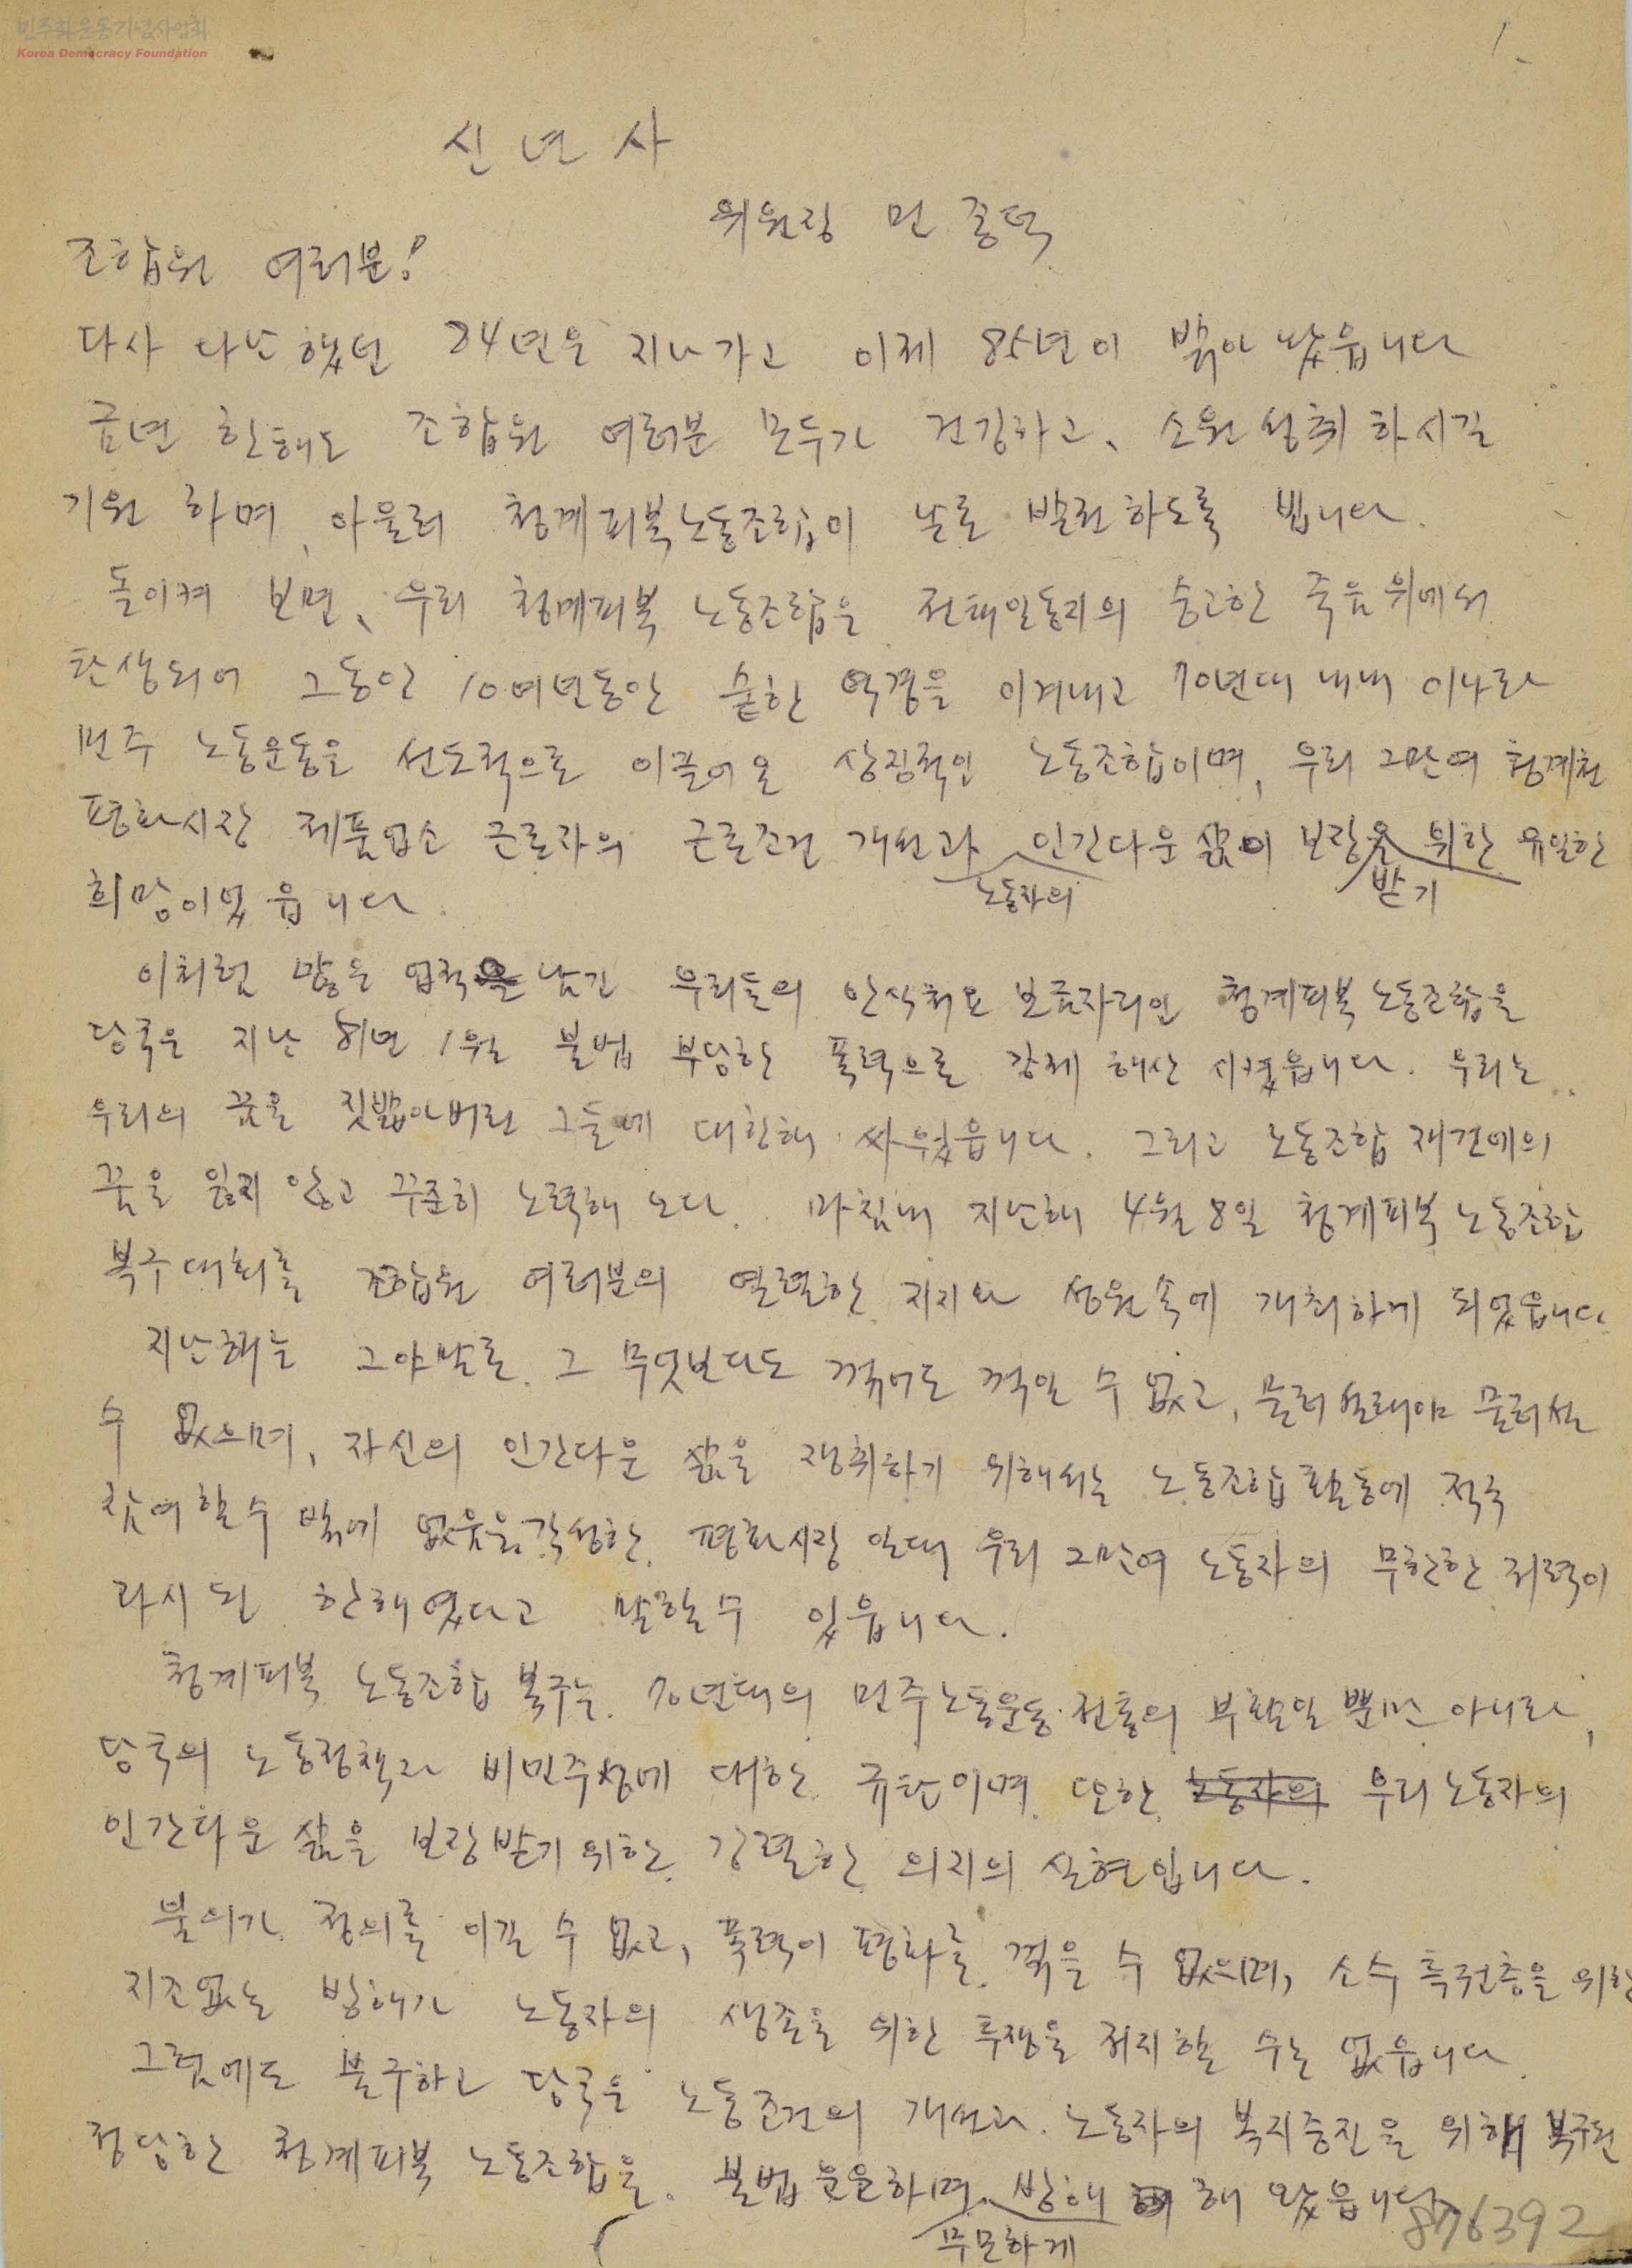 민주화운동기념사업회
Korea Democracy Foundation
1.
신년사
위원장 민종덕
조합원 여러분!
다사 다난 했던 84년은 지나가고 이제 85년이 밝아 왔읍니다
금년 한해도 조합원 여러분 모두가 건강하고, 소원 성취 하시길
기원 하며, 아울러 청계피복노동조합이 날로 발전하도록 빕니다.
돌이켜 보면, 우리 청계피복 노동조합은 전태일동지의 숭고한 죽음위에서
탄생되어 그동안 10여년동안 숱한 역경을 이겨내고 70년대 내내 이나라
민주 노동운동을 선도적으로 이끌어온 상징적인 노동조합이며, 우리 2만여 청계천
평화시장 제품업소 근로자의 근로조건 개선과 인간다운 삶이 보장을 위한 유일한
노동자의 받기
희망이었읍니다.
이처럼 많은 업적을 남긴 우리들의 안식처요 보금자리인 청계피복 노동조합을
당국은 지난 81년 1월 불법 부당한 폭력으로 강제 해산 시켰읍니다. 우리는
우리의 꿈을 짓밟아버린 그들에 대항해 싸우었읍니다. 그리고 노동조합 재건에의
꿈을 잃지 않고 꾸준히 노력해 오다. 마침내 지난해 4월 8일 청계피복 노동조합
복구대회를 조합원 여러분의 열렬한 지지와 성원속에 개최하게 되었읍니다
지난해는 그야말로 그 무엇보다도 꺾어도 꺽일 수 없고, 물러설래야 물러설
수 없으며, 자신의 인간다운 삶을 쟁취하기 위해서는 노동조합 활동에 적극
참여할수 밖에 없음을 각성한 평화시장 일대 우리 2만여 노동자의 무한한 저력이
과시된 한해였다고 말할수 있읍니다.
청계피복 노동조합 복구는 70년대의 민주노동운동 전통의 부활일 뿐만 아니라,
당국의 노동정책과 비민주성에 대한 규탄이며 또한 노동자의 우리 노동자의
인간다운 삶을 보장받기 위한 강렬한 의지의 실현입니다.
불의가 정의를 이길 수 없고, 폭력이 평화를 꺾을 수 없으며, 소수 특권층을 위한
지조없는 방해가 노동자의 생존을 위한 투쟁을 저지할 수는 없읍니다.
그럼에도 불구하고 당국은 노동조건의 개선과 노동자의 복지증진을 위해 복구된
정당한 청계피복 노동조합을 불법 운운하며 방해 해 왔읍니다
무모하게
876392